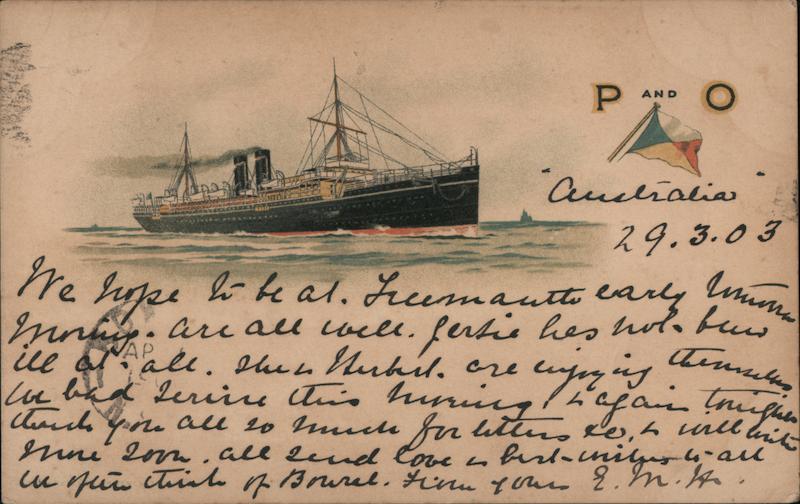 P AND O
"Australia"
29.3.03
We hope to be at. Freemantle early tomorrow
Morning. are all well. Gertie has not been
ill at. all. She & Herbert. are enjoying themselves
we had service this morning & again tonight
thank you all so much for letters &c, & will write
more soon. all send love & best wishes to all
we often think of Bowral. From yours E. M. H.
AP